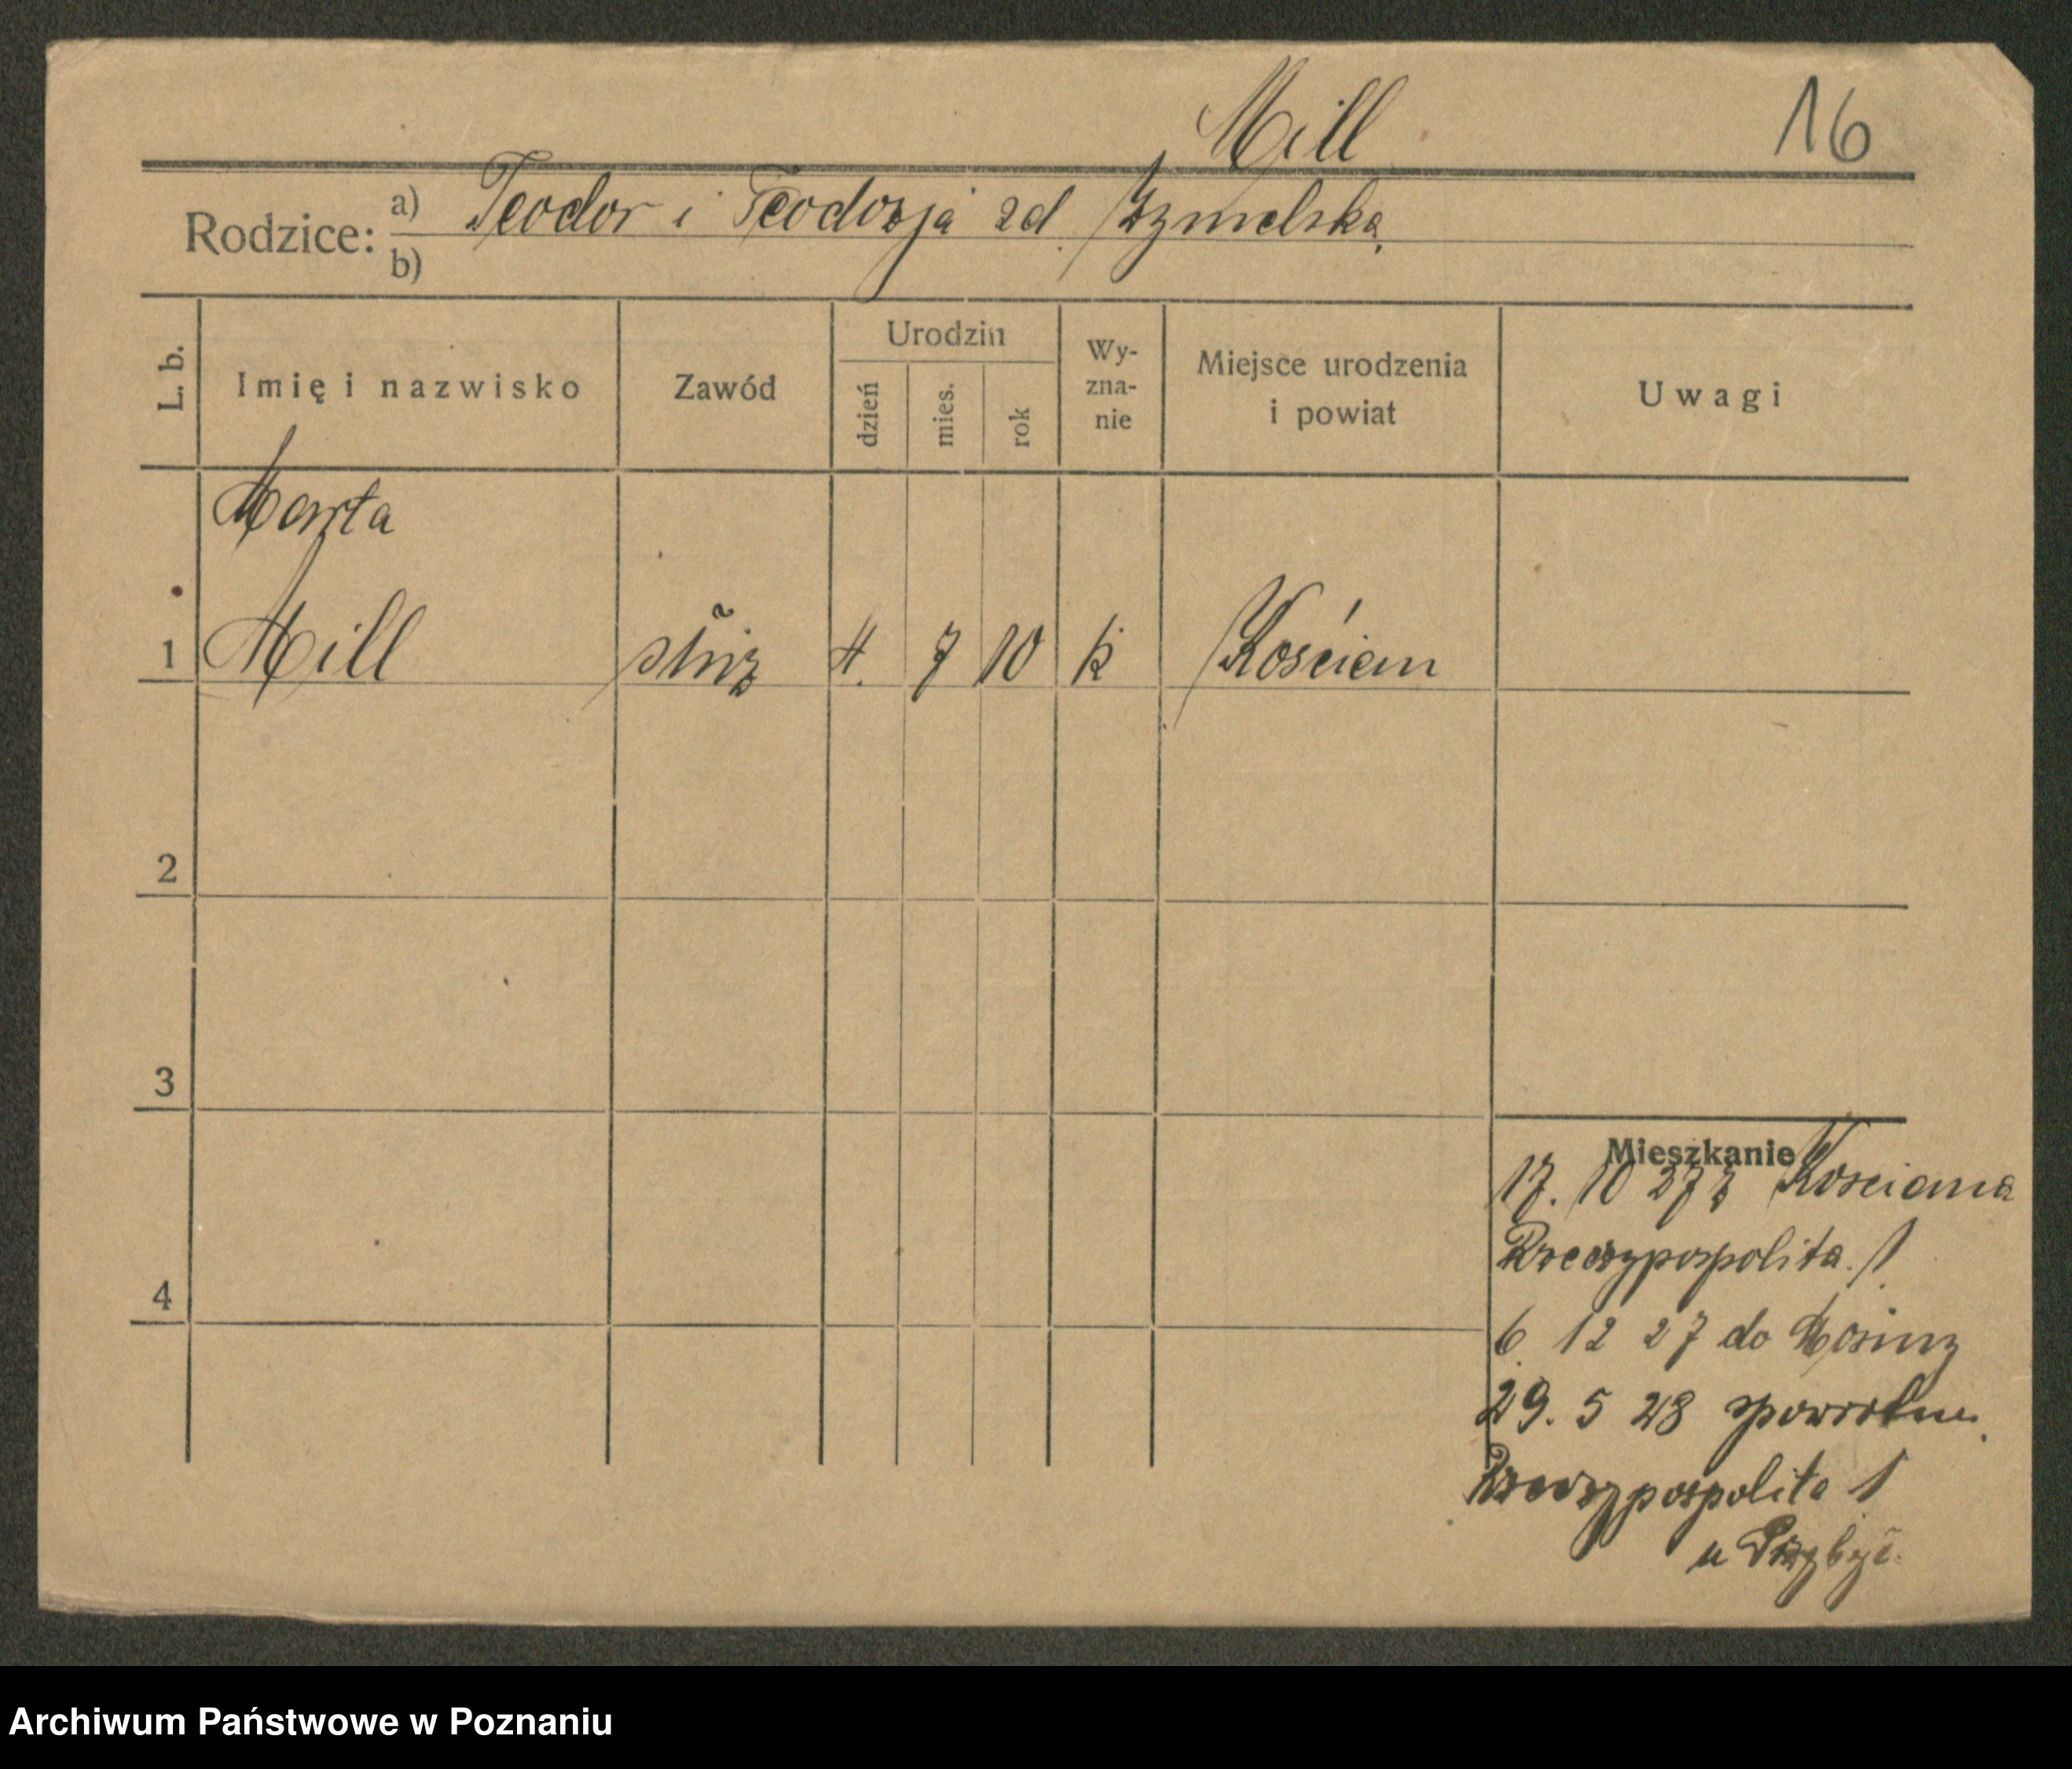 Mill
16
Rodzice: a) Teodor i Teodozja zd.
b)
L. b. Imię i nazwisko Zawód Urodzin dzień mies. rok Wy-zna-nie Miejsce urodzenia i powiat Uwagi
Marta
1 Mill służ 4. 7 10 k Kościan
2
3
4
Mieszkanie
17. 10 27 z Kościana
Rzeczypospolita. 1.
6. 12 27 do Mosiny
29. 5 28 spowrotem.
Rzeczypospolita 1
u
Archiwum Państwowe w Poznaniu